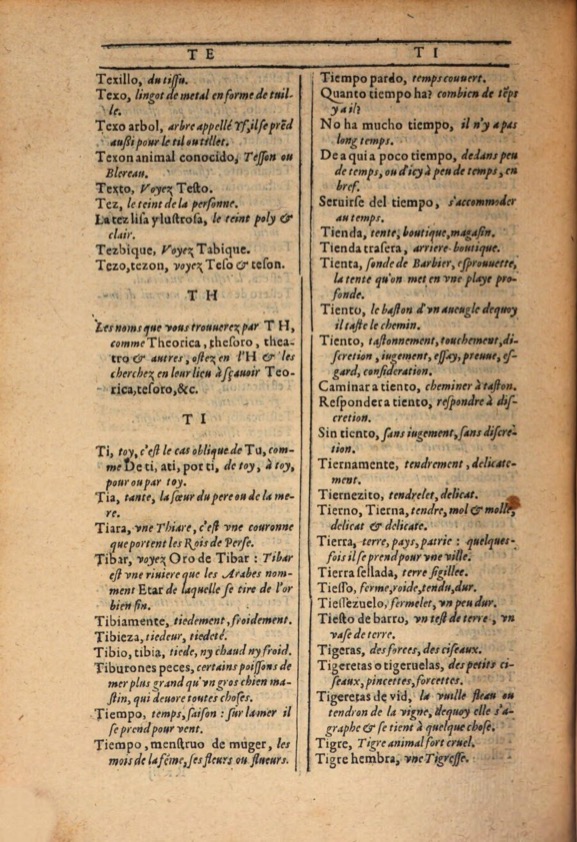 TE
TI
Texillo, du tiſſu.
Texo, lingot de metal en forme de tuil-
le.
Texo arbol, arbre appellé Yf, il ſe prẽd
außi pour le til ou tillet.
Texon animal conocido, Teſſon ou
Blereau.
Texto, Voyez Teſto.
Tez, le teint de la perſonne.
La tez liſa y luſtroſa, le teint poly &
clair.
Tezbique, Voyez Tabique.
Tezo, tezon, voyez Teſo & teſon.
TH
Les noms que vous trouuerez par TH,
comme Theorica, theſoro, thea-
tro & autres, oſtez en l'H & les
cherchez en leur lieu à ſçauoir Teo-
rica, teſoro, &c.
TI
Ti, toy, c'eſt le cas oblique de Tu, com-
me De ti, a ti, por ti, de toy, à toy,
pour ou par toy.
Tia, tante, la ſœur du pere ou de la me-
re.
Tiara, vne Thiare, c'eſt vne couronne
que portent les Rois de Perſe.
Tibar, voyez Oro de Tibar : Tibar
eſt vne riuiere que les Arabes nom-
ment Etar de laquelle ſe tire de l'or
bien fin.
Tibiamente, tiedement, froidement.
Tibieza, tiedeur, tiedeté.
Tibio, tibia, tiede, ny chaud ny froid.
Tiburones peces, certains poiſſons de
mer plus grand qu'vn gros chien ma-
ſtin, qui deuore toutes choſes.
Tiempo, temps, ſaiſon : ſur la mer il
ſe prend pour vent.
Tiempo, menſtruo de muger, les
mois de la fẽme, ſes fleurs ou flueurs.
Tiempo pardo, temps couuert.
Quanto tiempo ha? combien de tẽps
y a il?
No ha mucho tiempo, il n'y a pas
long temps.
De aqui a poco tiempo, dedans peu
de temps, ou d'icy à peu de temps, en
bref.
Seruirſe del tiempo, s'accommoder
au temps.
Tienda, tente, boutique, magaſin.
Tienda traſera, arriere-boutique.
Tienta, ſonde de Barbier, eſprouuette,
la tente qu'on met en vne playe pro-
fonde.
Tiento, le baſton d'vn aueugle dequoy
il taſte le chemin.
Tiento, taſtonnement, touchement, di-
ſcretion, iugement, eſſay, preuue, eſ-
gard, conſideration.
Caminar a tiento, cheminer à taſton.
Reſponder a tiento, reſpondre à diſ-
cretion.
Sin tiento, ſans iugement, ſans diſcre-
tion.
Tiernamente, tendrement, delicate-
ment.
Tiernezito, tendrelet, delicat.
Tierno, Tierna, tendre, mol & molle,
delicat & delicate.
Tierra, terre, pays, patrie : quelques-
fois il ſe prend pour vne ville.
Tierra ſellada, terre ſigillee.
Tieſſo, ferme, roide, tendu, dur.
Tieſſezuelo, fermelet, vn peu dur.
Tieſto de barro, vn teſt de terre, vn
vaſe de terre.
Tigeras, des forces, des ciſeaux.
Tigeretas o tigeruelas, des petits ci-
ſeaux, pincettes, forcettes.
Tigeretas de vid, la vuille fleau ou
tendron de la vigne, dequoy elle s'a-
graphe & ſe tient à quelque choſe.
Tigre, Tigre animal fort cruel.
Tigre hembra, vne Tigreſſe.